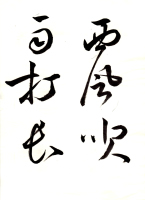 西風吹
雨打长